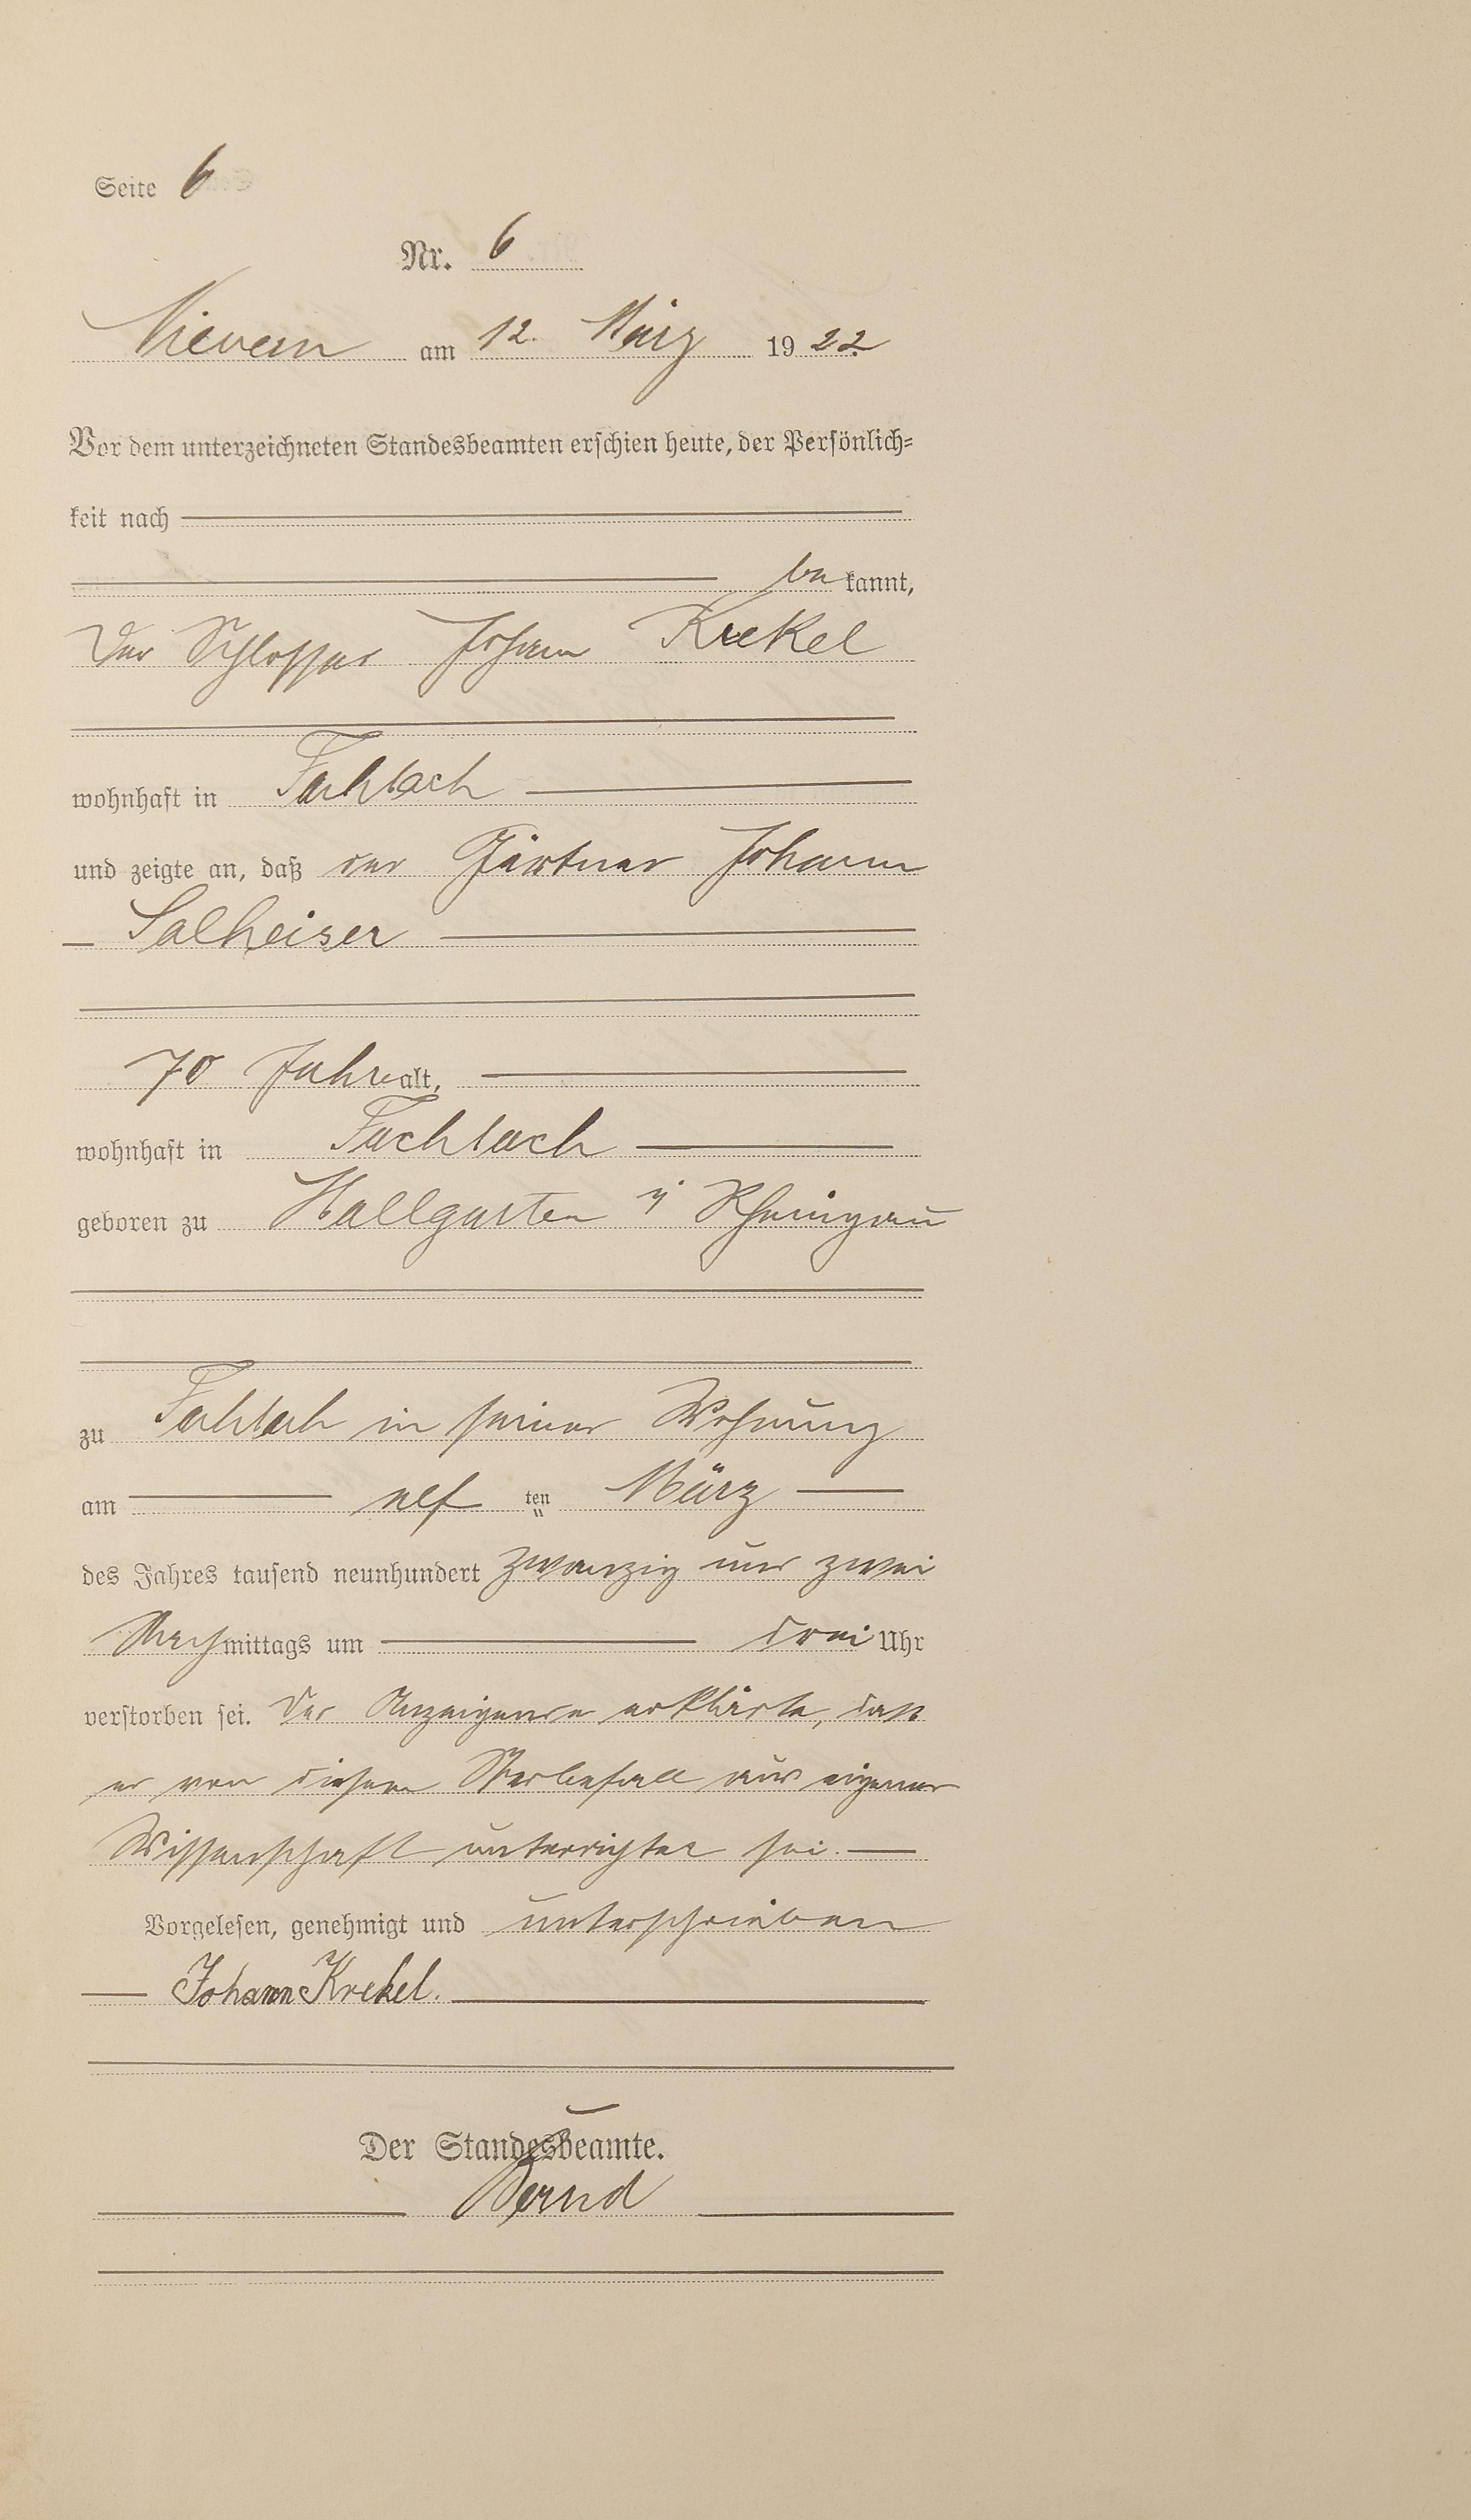 Seite 6
Nr. 6
Nievern am 12. März 1922
Vor dem unterzeichneten Standesbeamten erschien heute, der Persönlich=
keit nach
be kannt,
Der Schlosser Johann Krekel
wohnhaft in Fachbach
und zeigte an, daß der Gärtner Johann
Salheiser
70 Jahre alt,
wohnhaft in Fachbach
geboren zu Hallgarten i/ Rheingau
zu Fachbach in seiner Wohnung
am elf ten März
des Jahres tausend neunhundert zwanzig und zwei
Nachmittags um drei Uhr
verstorben sei. Der Anzeigende erklärte, daß
er von diesem Sterbefall aus eigener
Wissenschaft unterrichtet sei.
Vorgelesen, genehmigt und unterschrieben
Johann Krekel.
Der Standesbeamte.
Bernd